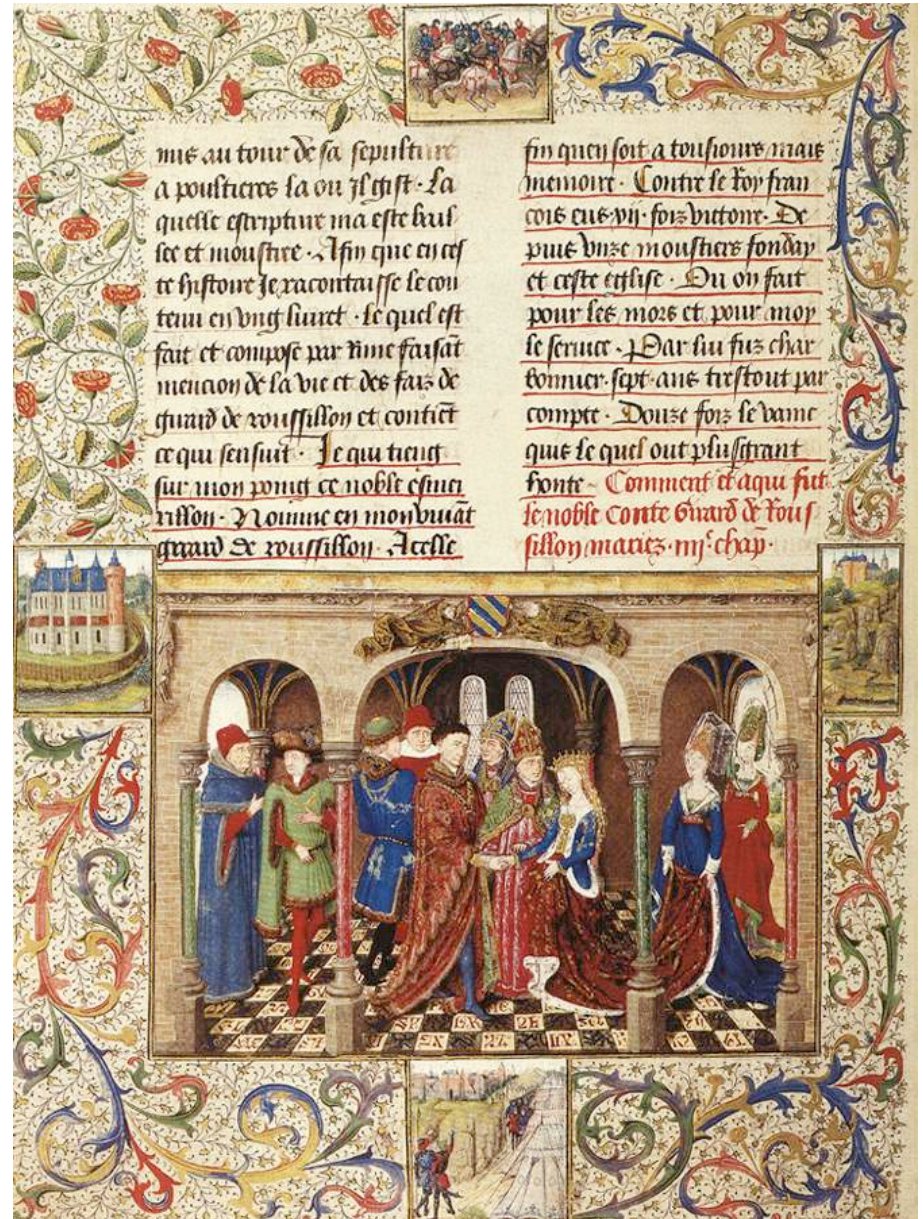 mis au tour de sa sepulture
a poultieres la ou Il gist · La
quelle escripture ma este bail
lee et moustree · Afin que en ces
te histoire Je racontaisse le con
tenu en vng liuret · le quel est
fait et compose par Rime faisāt
mencion de la vie et des fais de
gerard de roussillon et contiēt
ce qui sensuit · Je qui tieng
sur mon poing ce noble esmeri
rillon · Nomme en mon viuāt
gerard de roussillon · A celle
fin quen soit a tousiours mais
memoire · Contre le Roy fran
cois eus · vij · fois victoire · De
puis vnze moustiers fonday
et ceste eglise · Ou on fait
pour les mors et pour moy
le seruice · Par lui fus char
bonnier · sept · ans trestout par
compte · Douze fois le vain
quis le quel out plus grant
honte · Comment et a qui fut
le noble Conte Gerard de Rous
sillon mariez · iijᵉ chap̄ ·